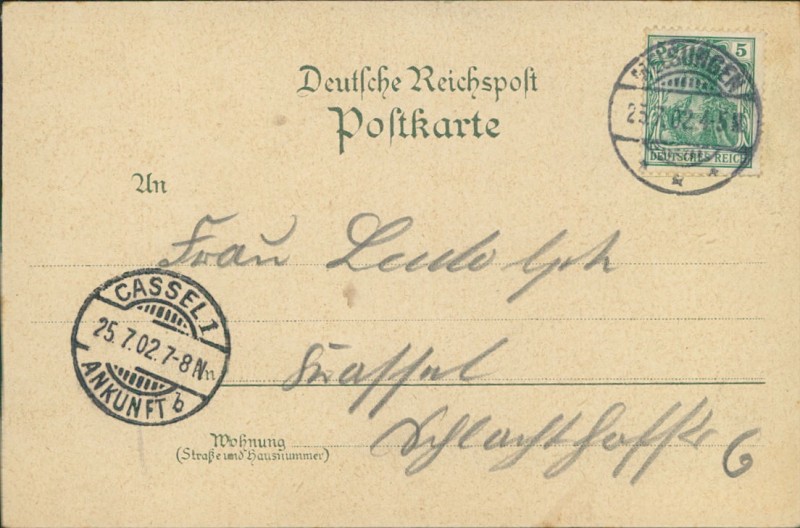 Deutsche Reichspost
Postkarte
5
MELSUNGEN
25.7.02.4-5N
DEUTSCHES REICH
An
Frau Ludolph
CASSEL 1
25.7.02.7-8Nm
ANKUNFT b
Kassel
Wohnung
(Straße und Hausnummer)
Schlachthofstr 6